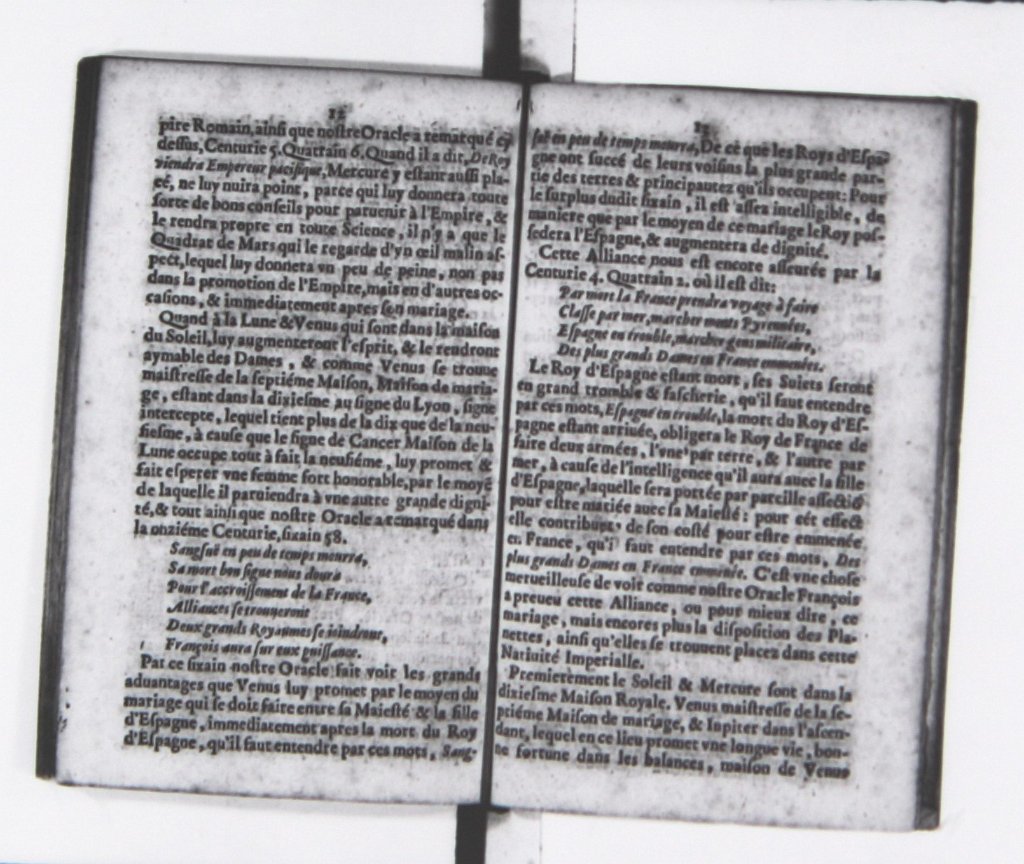 12
pire Romain, ainsi que nostre Oracle a remarqué cy
dessus, Centurie 5. Quatrain 6. Quand il a dit, De Roy
viendra Empereur pacifique, Mercure y estant aussi pla-
cé, ne luy nuira point, parce qui luy donnera toute
sorte de bons conseils pour paruenir à l'Empire, &
le rendra propre en toute Science, il n'y a que le
Quadrat de Mars qui le regarde d'vn œil malin as-
pect, lequel luy donnera vn peu de peine, non pas
dans la promotion de l'Empire, mais en d'autres oc-
casions, & immediatement apres son mariage.
Quand à la Lune & Venus qui sont dans la maison
du Soleil, luy augmenteront l'esprit, & le rendront
aymable des Dames, & comme Venus se trouue
maistresse de la septiéme Maison, Maison de maria-
ge, estant dans la dixiesme au signe du Lyon, signe
intercepte, lequel tient plus de la dix que de la neu-
fiesme, à cause que le signe de Cancer Maison de la
Lune occupe tout à fait la neufiéme, luy promet &
fait esperer vne femme fort honorable, par le moyē
de laquelle il paruiendra à vne autre grande digni-
té, & tout ainsi que nostre Oracle a remarqué dans
la onziéme Centurie, sixain 58.
Sangsuë en peu de temps mourra,
Sa mort bon signe nous donra
Pour l'accroissement de la France,
Alliances se trouueront
Deux grands Royaumes se ioindront,
François aura sur eux puissance.
Par ce sixain nostre Oracle fait voir les grands
aduantages que Venus luy promet par le moyen du
mariage qui se doit faire entre sa Maiesté & la fille
d'Espagne, immediatement apres la mort du Roy
d'Espagne, qu'il faut entendre par ces mots, Sang-
13
suë en peu de temps mourra, De ce que les Roys d'Espa-
gne ont succé de leurs voisins la plus grande par-
tie des terres & principautez qu'ils occupent: Pour
le surplus dudit sixain, il est assez intelligible, de
maniere que par le moyen de ce mariage le Roy pos-
sedera l'Espagne, & augmentera de dignité.
Cette Alliance nous est encore asseurée par la
Centurie 4. Quatrain 2. où il est dit:
Par mort la France prendra voyage à faire
Classe par mer, marcher monts Pyrennées,
Espagne en trouble, marcher gens militaire,
Des plus grands Dames en France emmenées.
Le Roy d'Espagne estant mort, ses Suiets seront
en grand tromble & fascherie, qu'il faut entendre
par ces mots, Espagne en trouble, la mort du Roy d'Es-
pagne estant arriuée, obligera le Roy de France de
faire deux armées, l'vne par terre, & l'autre par
mer, à cause de l'intelligence qu'il aura auec la fille
d'Espagne, laquelle sera portée par pareille affectiō
pour estre mariée auec sa Maiesté: pour cét effect
elle contribura de son costé pour estre emmenée
en France, qu'il faut entendre par ces mots, Des
plus grands Dames en France emmenée. C'est vne chose
merueilleuse de voir comme nostre Oracle François
a preueu cette Alliance, ou pour mieux dire, ce
mariage, mais encores plus la disposition des Pla-
nettes, ainsi qu'elles se trouuent placez dans cette
Natiuité Imperialle.
Premierement le Soleil & Mercure sont dans la
dixiesme Maison Royale. Venus maistresse de la se-
ptiéme Maison de mariage, & Iupiter dans l'ascen-
dant, lequel en ce lieu promet vne longue vie, bon-
ne fortune dans les balances, maison de Venus